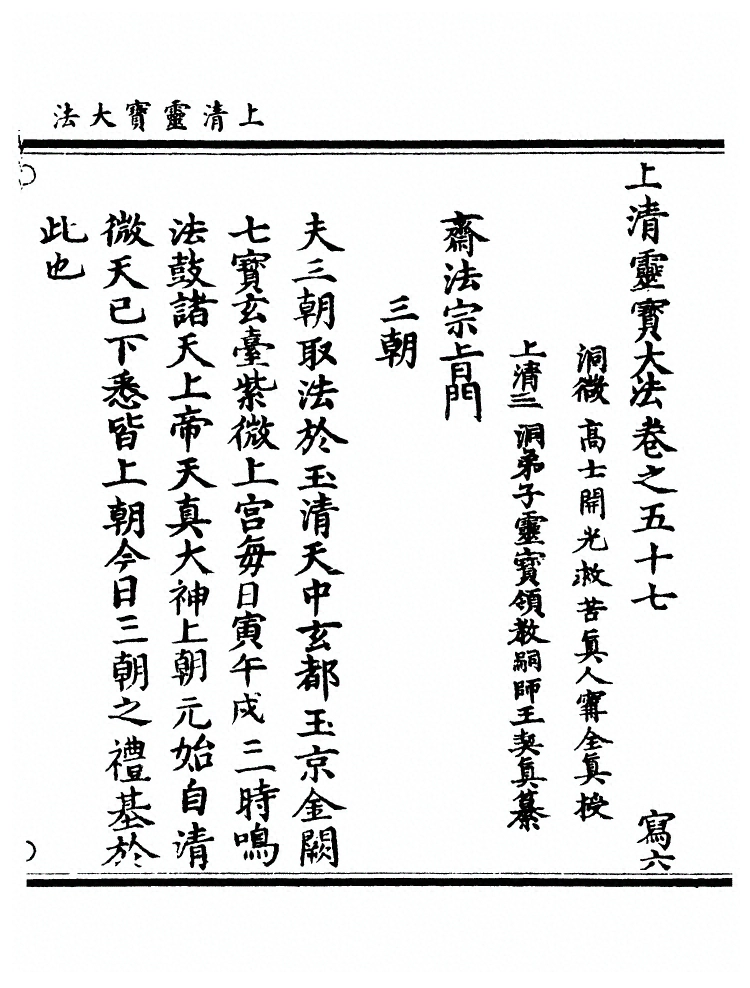 上清靈寶大法
上清靈寶大法卷之五十七 寫六
洞微高士開光救苦眞人甯全眞授
上清三洞弟子靈寶領教嗣師王契眞纂
齋法宗旨門
三朝
夫三朝取法於玉清天中玄都玉京金闕
七寶玄臺紫微上宫每日寅午戌三時鳴
法鼓諸天上帝天真大神上朝元始自清
微天已下悉皆上朝今日三朝之禮基於
此也